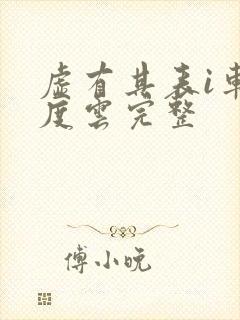 虛有其表i車
度雲完整
傅小晚